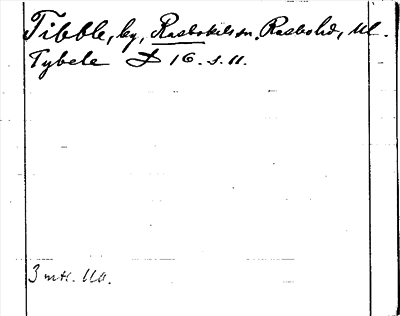 Tibble, by, Rasbokils sn. Rasbo hd, Ul.
Tybele D 16. s. 11.
3 mtl. Ua.